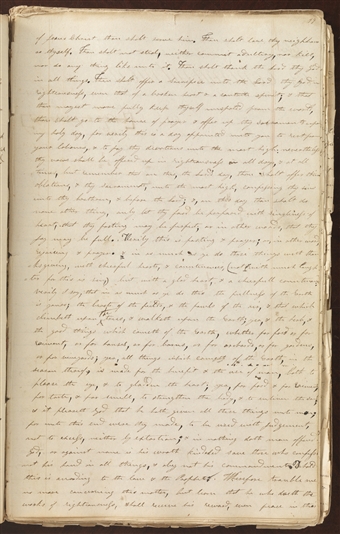 of Jesus Christ thou shalt serve him. Thou shalt love thy neighbour
as thyself. Thou shalt not steal, neither commit adultery, nor kill,
nor do any thing like unto it. Thou shalt thank the Lord thy God
in all things. Thou shalt offer a sacrifice unto the Lord thy God in
righteousness, even that of a broken heart & a contrite spirit; & that
thou mayest more fully keep thyself unspotted from the world,
thou shalt go to the house of prayer & offer up thy sacraments upon
my holy day, for verily this is a day appointed unto you to rest from
your labours, & to pay thy devotions unto the most high, nevertheless
thy vows shall be offered up in righteousness on all days, & at all
times, but remember that on this, the Lord's day, thou shalt offer thine
oblations, & thy sacraments, unto the most high, confessing thy sins
unto thy brethren, & before the Lord, & on this day thou shalt do
none other thing, only let thy food be prepared with singleness of
heart, that thy fasting may be perfect, or in other words, that thy
joy may be full. Verily this is fasting & prayer, or in other words
rejoicing & prayer. & in as much as ye do these things with thanks
=giving, with cheerful hearts, & countenances, not with much laugh
=ter for this is sin, but with a glad heart, & a cheerful countenance
verily I say, that in as much as ye do this the fullness of the earth
is yours, the beasts of the field, & the fowls of the air, & that which
climbeth upon trees, & walketh upon the earth, yea, & the herb, &
the good things which cometh of the earth, whether for food or for
raiment, or for houses, or for barns, or for orchards, or for gardens,
or for vineyards; yea, all things which cometh of the earth, in the
season thereof, is made for the benefit & the use of man, both to
please the eye, & to gladden the heart, yea, for food, & for raiment,
for taste, & for smell, to strengthen the body, & to enliven the soul
& it pleaseth God that he hath given all these things unto man,
for unto this end were they made, to be used with judgement,
not to excess, neither by extortion; & in nothing doth man offend
God, or against none is his wrath kindled save those who confess
not his hand in all things, & obey not his commandments. Behold
this is according to the law & the Prophets. Wherefore trouble me
no more concerning this matter, but learn that he who doeth the
works of righteousness, shall receive his reward, even peace in this